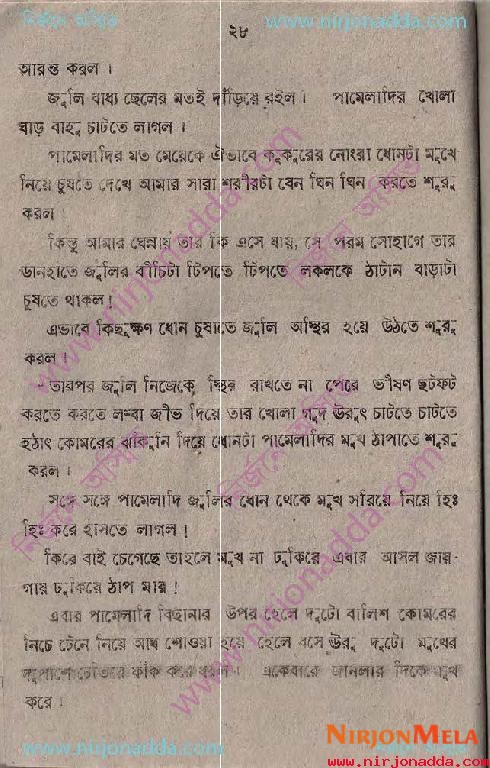 নির্জনে অসিতে
www.nirjonadda.com
২৮
আরম্ভ করল ।
জুলি বাধ্য ছেলের মতই দাঁড়িয়ে রইল । পামেলাদির খোলা
ঘাড় বাহু চাটতে লাগল ।
পামেলাদির মত মেয়েকে ঐভাবে কুকুরের নোংরা ধোনটা মুখে
নিয়ে চুষতে দেখে আমার সারা শরীরটা যেন ঘিন ঘিন করতে শুরু
করল ।
কিন্তু আমার ঘেন্নায় তার কি এসে যায়, সে পরম সোহাগে তার
ডানহাতে জুলির বীচিটা টিপতে টিপতে লকলকে ঠাটান বাড়াটা
চুষতে থাকল !
এভাবে কিছুক্ষণ ধোন চুষাতে জুলি অস্থির হয়ে উঠতে শুরু
করল ।
তারপর জুলি নিজেকে স্থির রাখতে না পেরে ভীষণ ছটফট
করতে করতে লম্বা জীভ দিয়ে তার খোলা গুদ ঊরুৎ চাটতে চাটতে
হঠাৎ কোমরের ঝাঁকুনি দিয়ে ধোনটা পামেলাদির মুখ ঠাপাতে শুরু
করল ।
সঙ্গে সঙ্গে পামেলাদি জুলির ধোন থেকে মুখ সরিয়ে নিয়ে হিঃ
হিঃ করে হাসতে লাগল !
কিরে বাই চেগেছে তাহলে মুখ না ঢুকিরে এবার আসল জায়-
গায় ঢুকিয়ে ঠাপ মার !
এবার পামেলাদি বিছানার উপর হেলে দুটো বালিশ কোমরের
নিচে টেনে নিয়ে আধ শোওয়া হয়ে হেলে বসে ঊরু দুটো মুখের
দুপাশে ফাঁক করে একেবারে জানলার দিকে মুখ
করে ।
NIRJONMELA
www.nirjonadda.com
www.nirjonadda.com